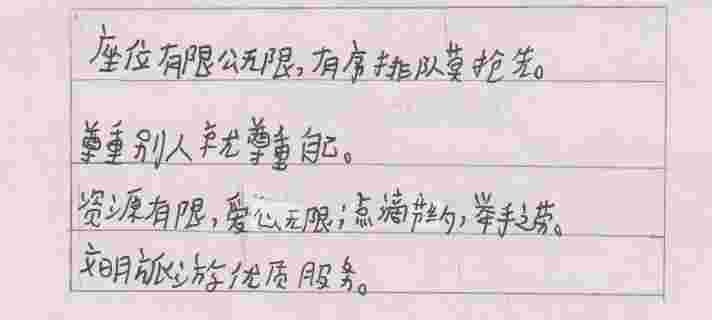 座位有限公无限,有序排队莫抢先。
尊重别人就尊重自己。
资源有限,爱心无限;点滴节约,举手之劳。
文明旅游优质服务。